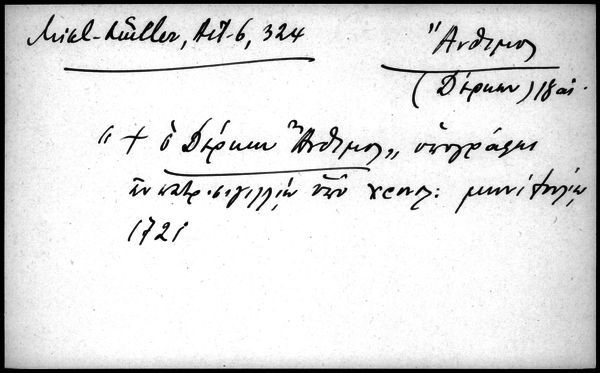 Mikl-Müller, Act-6, 324
Ἄνθιμος
(Δέρκων) 18 αἰ.
"+ ὁ Δέρκων Ἄνθιμος„ ὑπογράφει
ἐν πατρ. σιγιλλίῳ ὑπὸ χρονολ: μηνὶ Ἰουλίῳ
1721